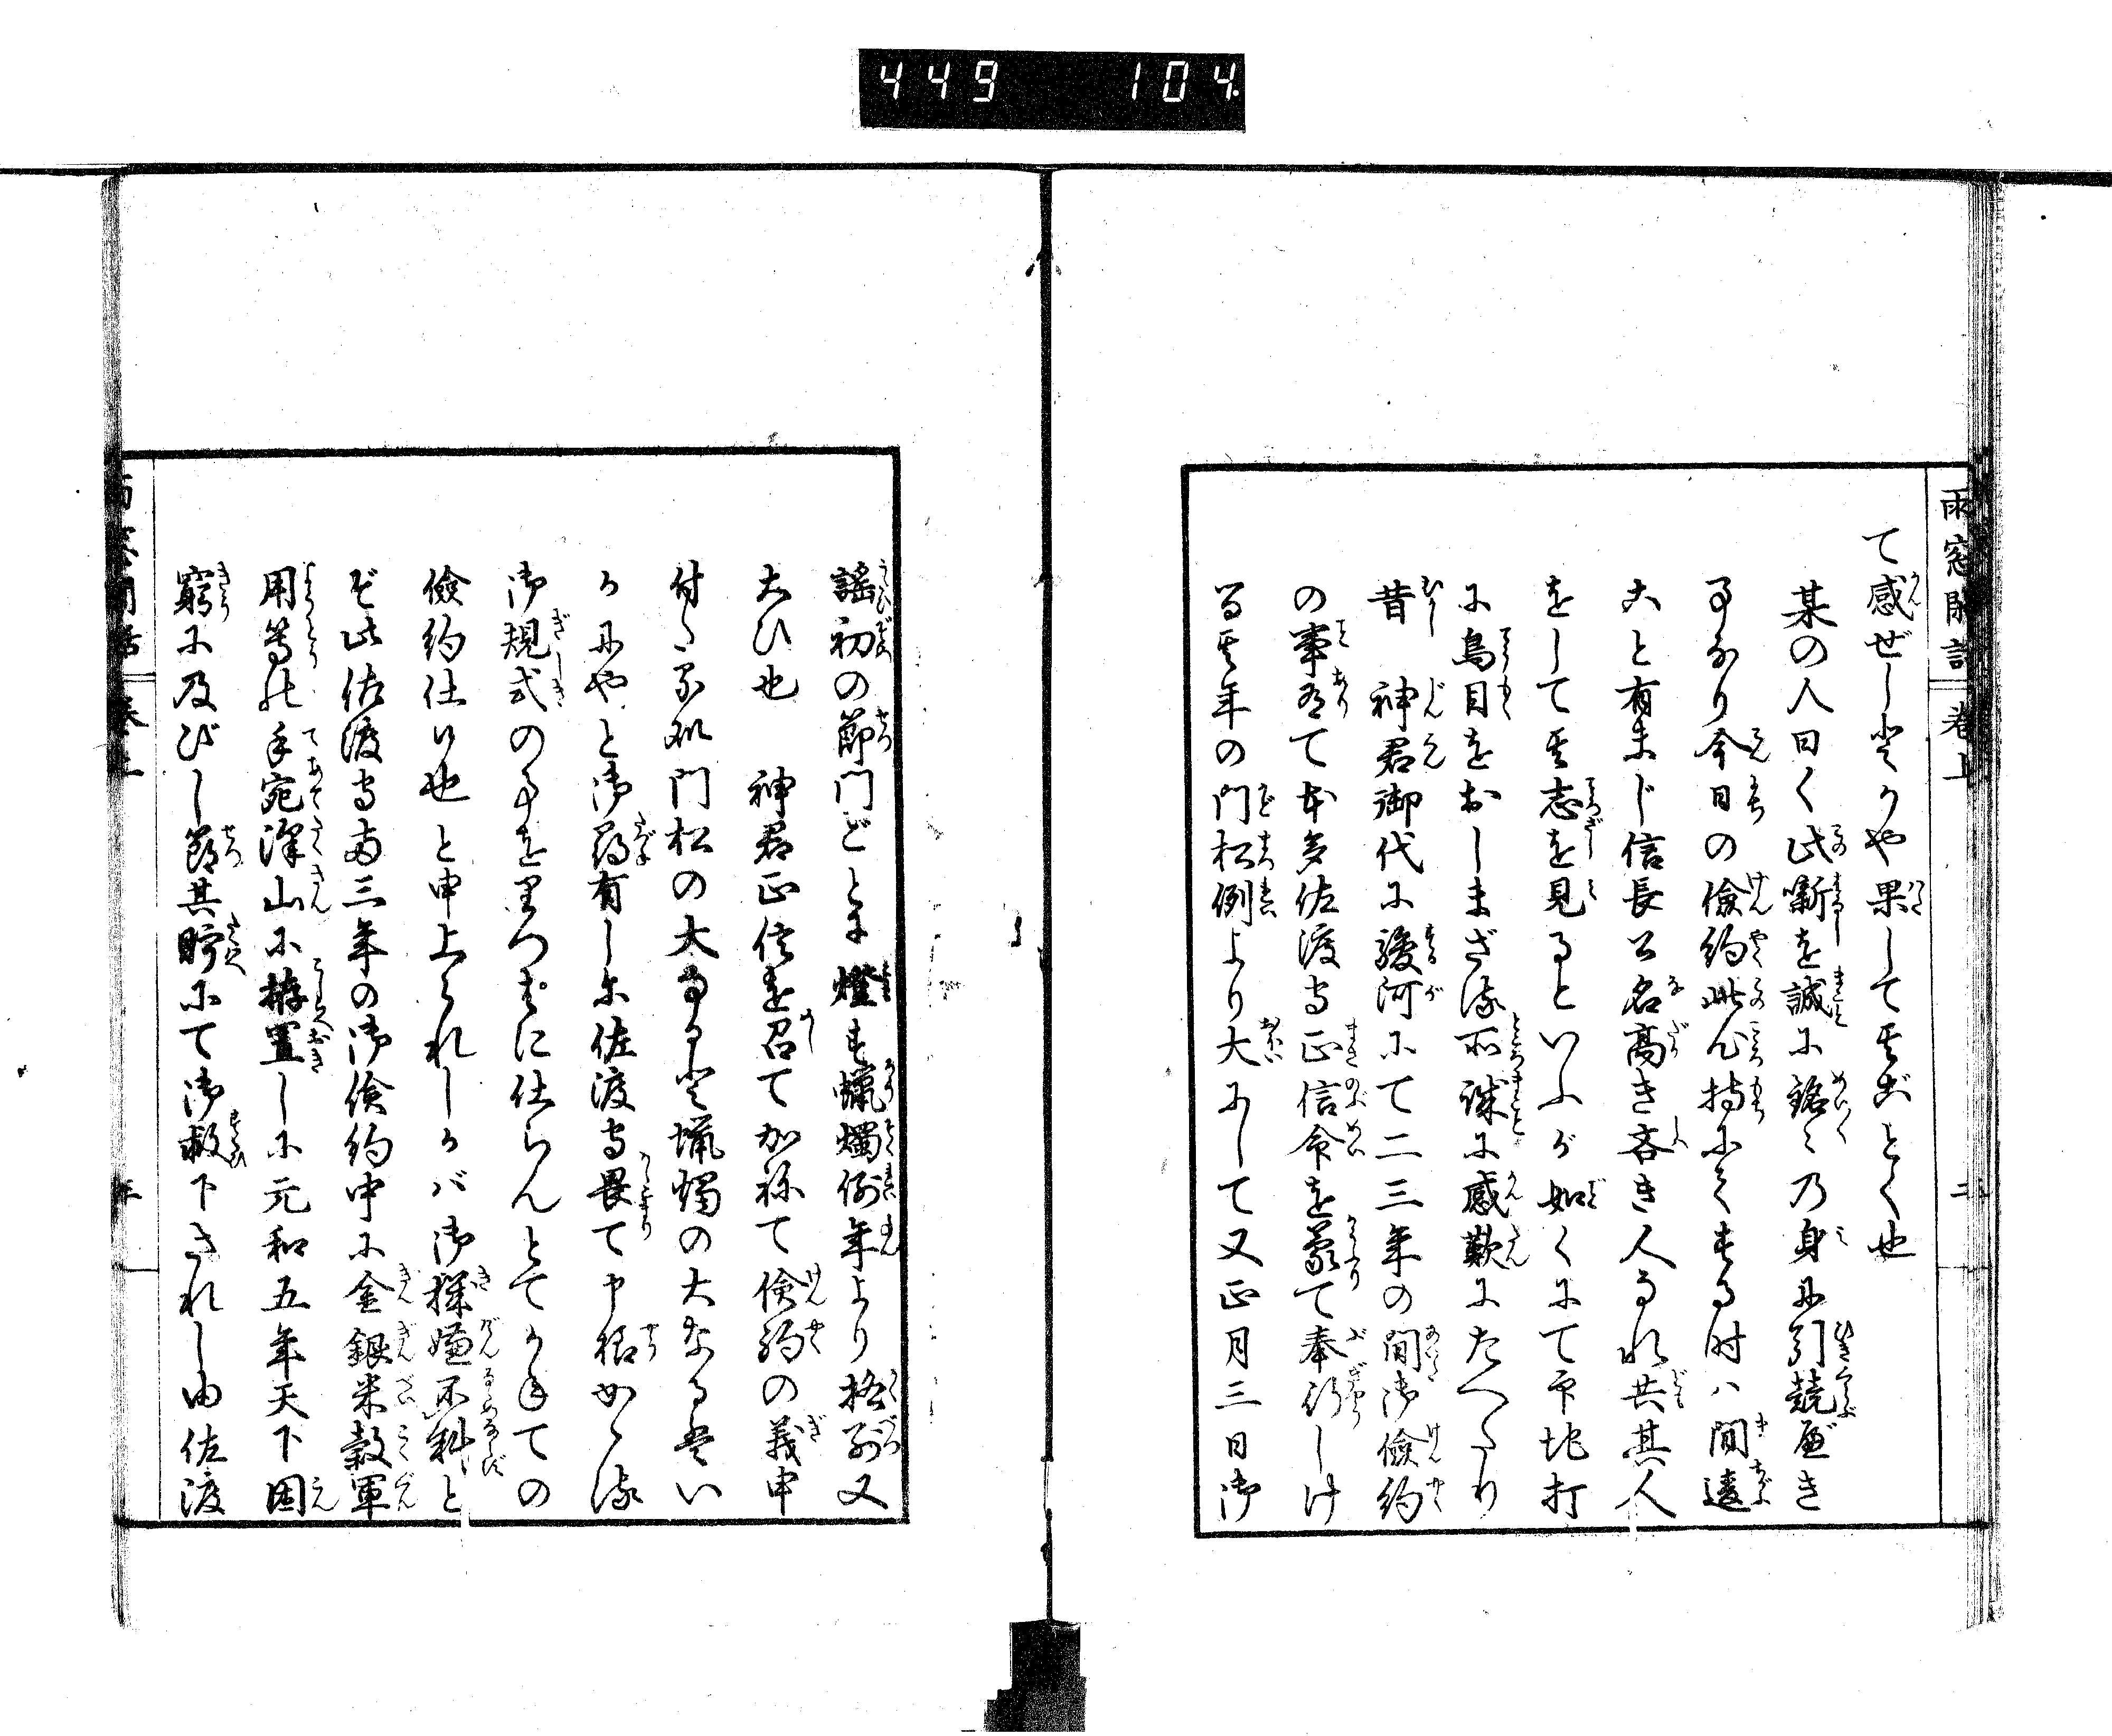 449 104.
雨窓閑話 巻上 二
て感ぜしとかや果して其ごとく也
某の人曰く此噺を誠に銘々の身に引競べき
事なり今日の倹約此心持にてする時は間違
こと有まじ信長公名高き吝き人なれ共其人
をして其志を見るといふが如くにて
に鳥目をおしまざる所誠に感歎にたへたり
昔 神君御代に駿河にて二三年の間御倹約
の事有て本多佐渡守正信命を蒙て奉行しけ
る其年の門松例より大にして又正月三日御
謡初の節門ごとに燈す蝋燭例年より格別又
大ひ也 神君正信を召て加祢て倹約の義申
付たる処門松の大なると蝋燭の大なるはい
かにやと御尋有しに佐渡守畏て申はかゝる
御規式の事を里つぱに仕らんとてかねての
倹約仕り也と申上られしかバ御機嫌不斜と
ぞ此佐渡守両三年の御倹約中に金銀米穀軍
用等の手宛沢山に拵置しに元和五年天下困
窮に及びし節其貯にて御救下されし由佐渡